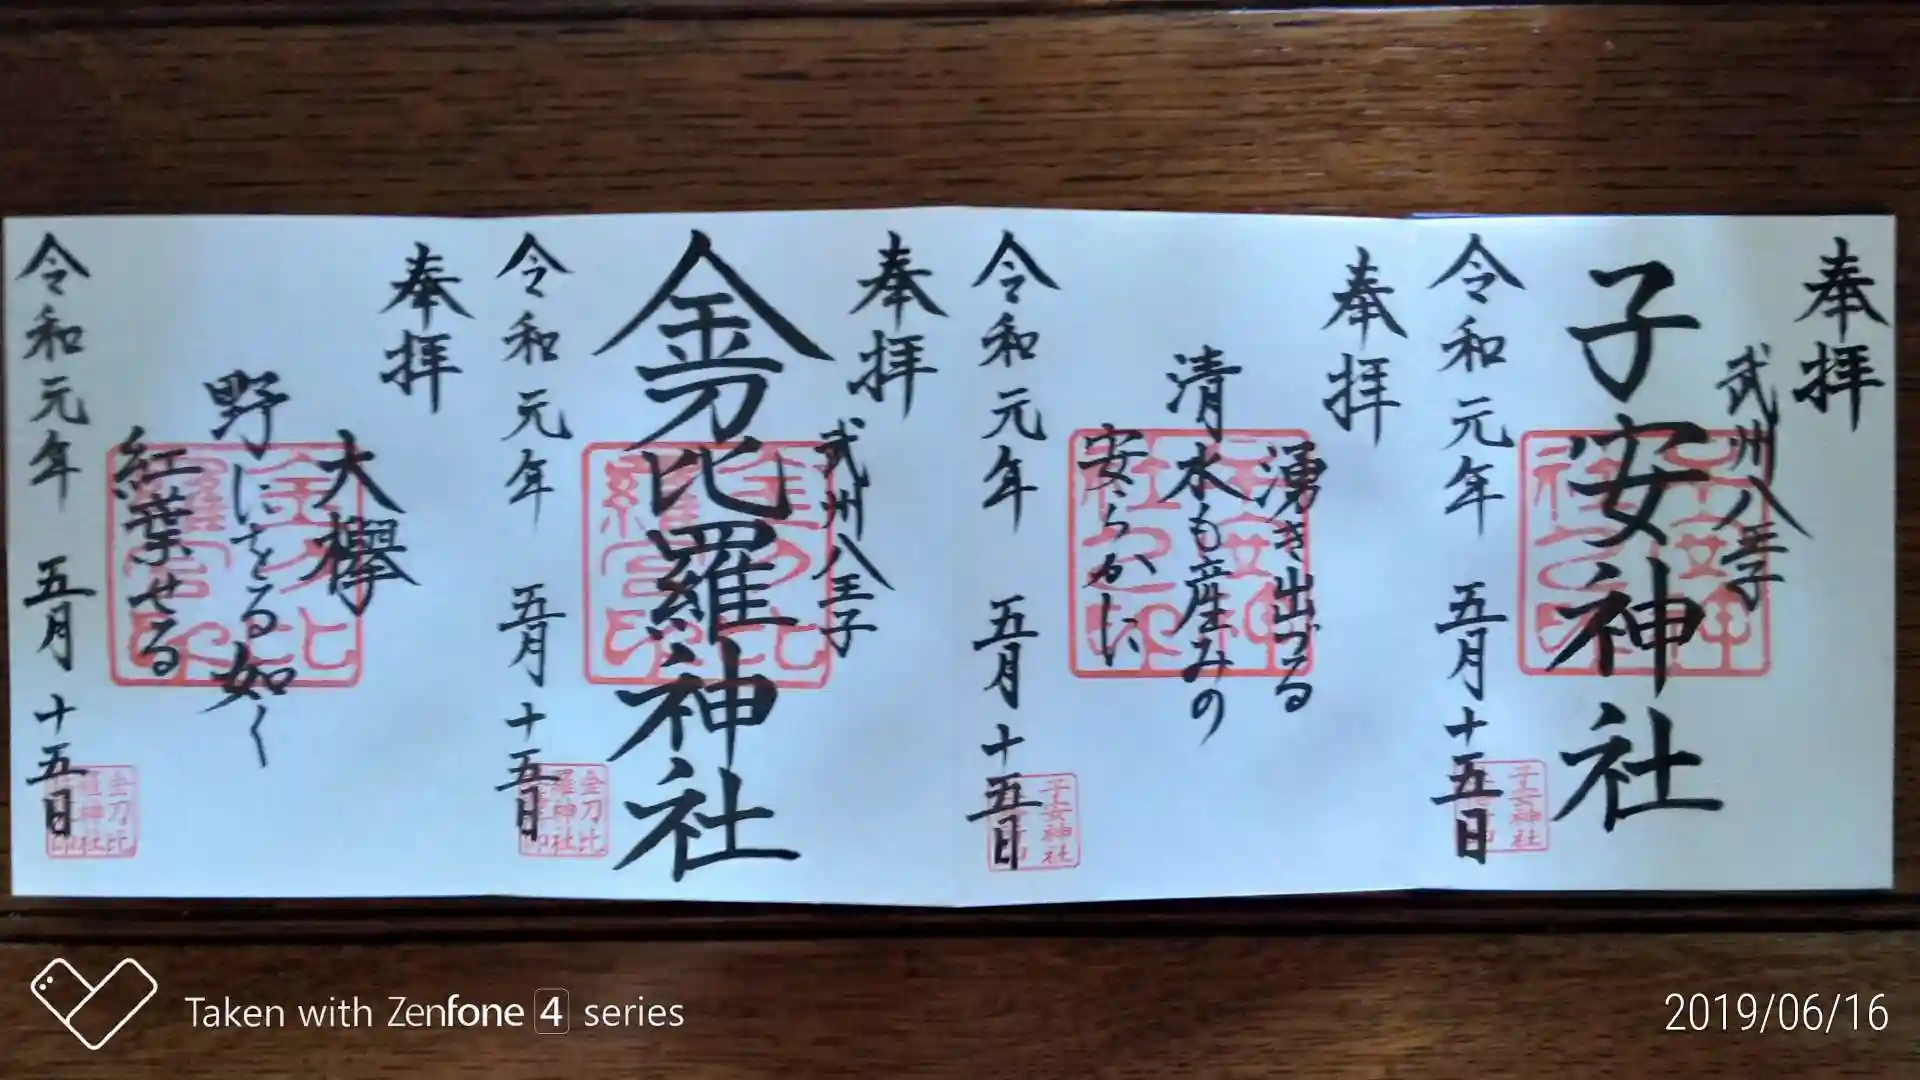 奉拝
武州八王子
子安神社
令和元年 五月十五日
子安神社
奉拝
湧き出づる
清水も産みの
安らかに
令和元年 五月十五日
子安神社
奉拝
武州八王子
金刀比羅神社
令和元年 五月十五日
金刀比
羅神社
奉拝
大欅
野にをる如く
紅葉せる
令和元年 五月十五日
金刀比
羅神社
Taken with Zenfone 4 series
2019/06/16